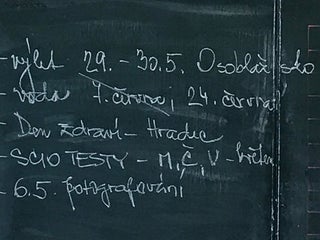 - výlet 29. - 30.5. Osoblažsko
- voda 7. června, 24. června
- Den zdraví - Hradec
- SCIO TESTY - M, Č, V - květen
- 6.5. fotografování